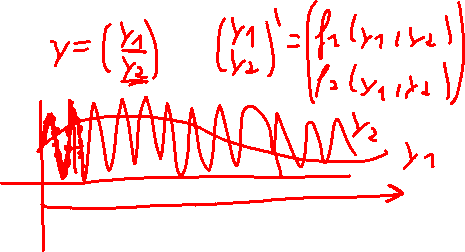 y = (y1 / y2) (y1 y2)' = (f1(y1, y2)
f2(y1, y2))
y2
y1